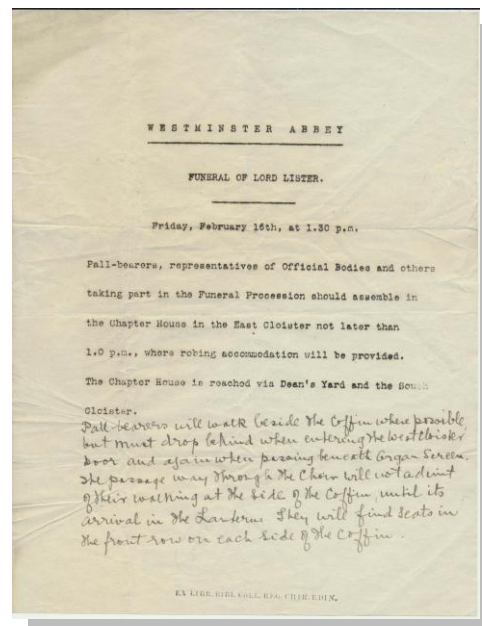 WESTMINSTER ABBEY
FUNERAL OF LORD LISTER.
Friday, February 16th, at 1.30 p.m.
Pall-bearers, representatives of Official Bodies and others
taking part in the Funeral Procession should assemble in
the Chapter House in the East Cloister not later than
1.0 p.m., where robing accommodation will be provided.
The Chapter House is reached via Dean's Yard and the South
Cloister.
Pall-bearers will walk beside the Coffin where possible,
but must drop behind when entering the West Cloister
Door and again when passing beneath Organ Screen.
The passage way through the Choir will not admit
of their walking at the side of the Coffin, until its
arrival in the Lantern. They will find seats in
the front row on each side of the Coffin.
EX LIBR. BIBL. COLL. REG. CHIR. EDIN.